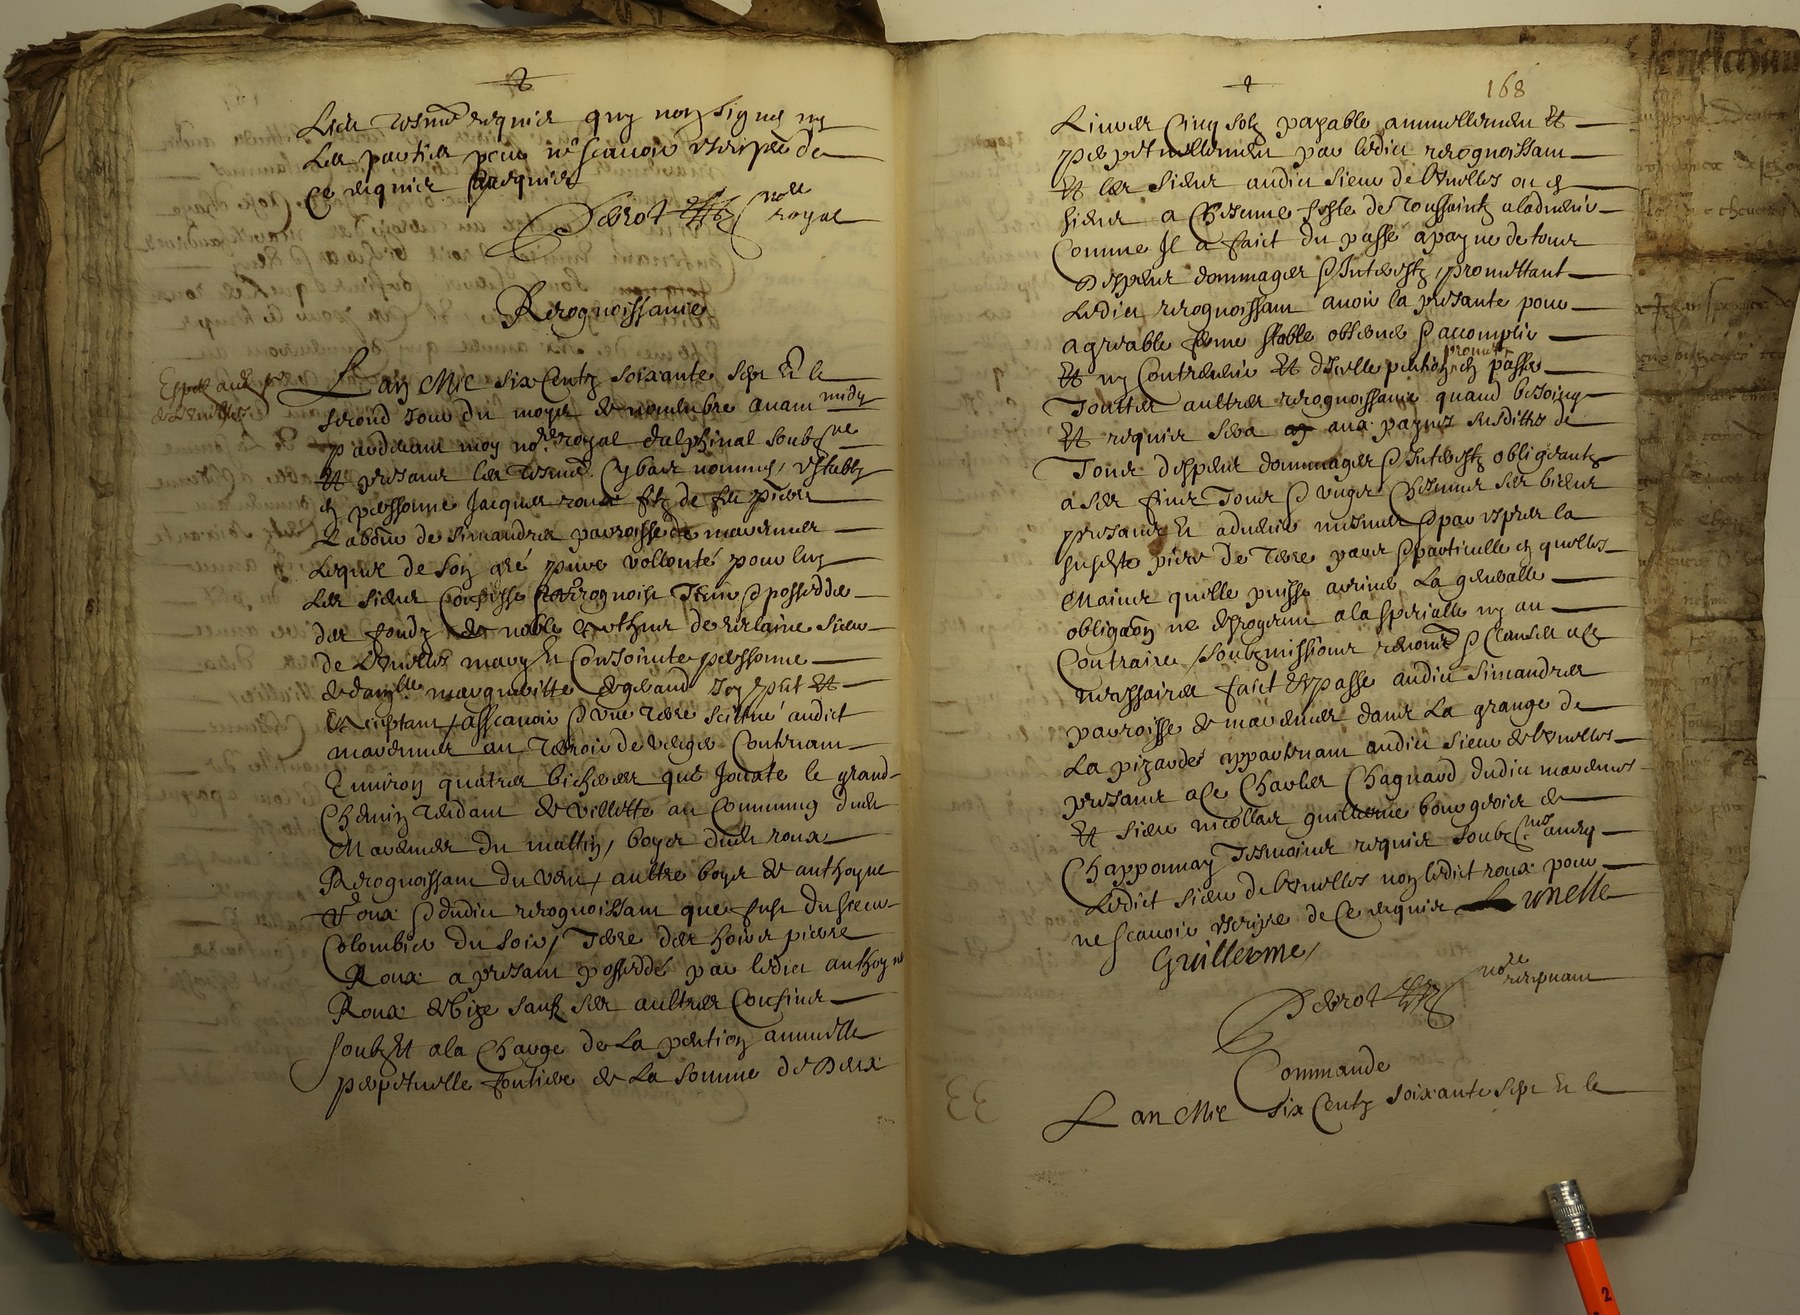 Lesd tesmᵉ requis quy nont signes ny
Les parties pour ne scavoir escripre de
ce requis enquis
Perrot noʳᵉ royal
Recognoissance
L'an Mil six Centz soixante sept Et le
second Jour du moys de novembre avant midy
pardevant moy noʳᵉ royal dalphinal soubzᵉⁿᵉ
Et presant les tesmᵉ Cy bas nommes, estably
en personne Jacques roux filz de feu pierre
Laboʳ de Simandres parroisse de marennes
Lequel de son gré pure vollonté pour luy
Les siens Confesse recognoist Tenir & posseddes
des fondz de noble Arthus de Lerlaine sieur
de Bruelles mary Et Conjointe personne
de damˡˡᵉ margueritte Ergeaud Icy pnt Et
acceptant, assçavoir une terre scittué audict
marennes au terroir de verges Contenant
Environ quatres bichérées quy Jouxte le grand
Chemin tendant de villette au Communs dudt
Marennes du mattin, boys dudt roux
Recognoissant du vent, aultre boys de anthoyne
Roux & dudict recognoissant que fust du sieur
Colombier du soir, Terre des hoirs pierre
Roux a presant posseddé par ledict anthoyne
Roux de bize sauf ses aultres Confins
soubz Et a la Charge de La pention annuelle
perpetuelle fontiere de La somme de Deux
168
Livres Cinq solz payable annuellement Et
perpetuellement par ledict recognoissant
Et les siens audict sieur de Bruelles ou es
siens a Chescune feste de Toussainctz a ladvenir
Comme Il a faict du passé a payne de tous
Despens dommages & Interestz, promettant
Ledict recognoissant avoir la presante pour
agreable ferme stable observer & accomplir
Et ny Contrevenir Et d'Icelle pention promet en passer
Touttes aultres recognoissance quand besoing
Et requis sera aux paynes susdittes de
Tous despens dommages & Interestz obligeantz
a ses fins Tous & ungs Chescuns ses biens
presants Et advenir mesmes & par exprès la
susdite piece de terre pure & particulle en quelles
Mains quelle puisse arriver La generalle
obligaõn ne derogeant a la specialle ny au
Contraire, soubzmissions renonᵒⁿˢ & Clauses a Ce
necessaires faict Et passé audict simandres
parroisse de marennes dans La grange de
La pizardé appartenant audict sieur de Bruelles
presants a Ce Charles Chagnard dudict marennes
Et sieur nicollas guillerme bourgeois de
Chapponnay Tesmoins requis soubzᵉⁿᵉˢ avecq
Ledict sieur de Bruelles non ledict roux pour
ne scavoir escripre de Ce requis Lunelle
Guillerme,
Perrot noʳᵉ recepvant
Commande
L'an Mil six Centz soixante sept Et le